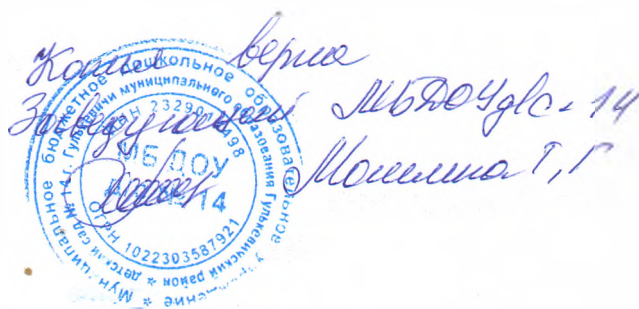 Копия верна
Заведующий МБДОУ д/с - 14
Мошлина Т, Г
Муниципальное бюджетное дошкольное образовательное учреждение
детский сад № 14 г. Гулькевичи муниципального образования Гулькевичский район
ИНН 2329 498
МБ ДОУ
14
ОГРН 1022303587921